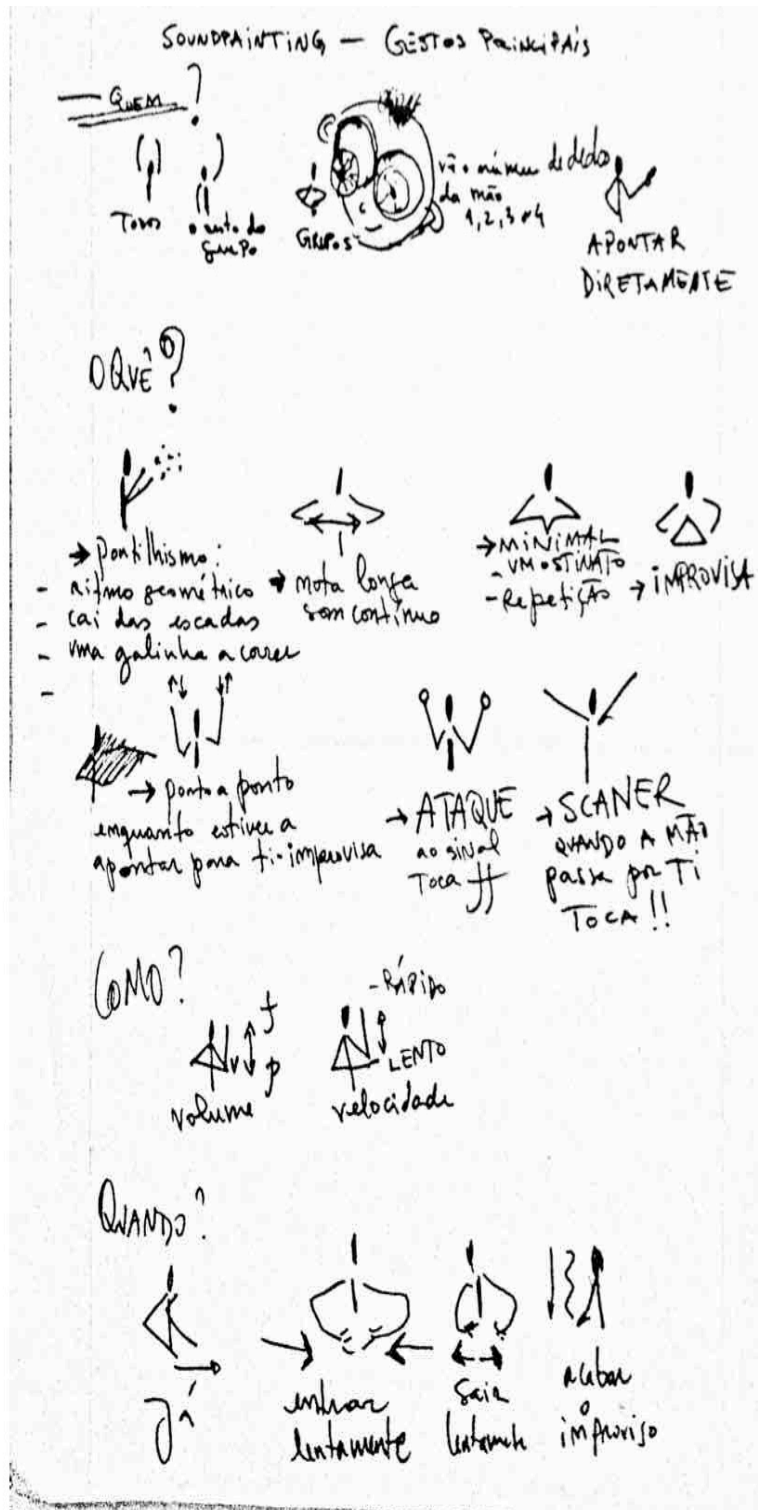 SOUNDPAINTING — GESTOS PRINCIPAIS
— QUEM ?
TODOS
o resto do
GRUPO
GRUPOS
vão o número de dedos
da mão
1, 2, 3 ou 4
APONTAR
DIRETAMENTE
O QUÊ?
→ pontilhismo:
- ritmo geométrico
- cai das escadas
- uma galinha a correr
-
→ nota longa
som contínuo
→ MINIMAL
- UM OSTINATO
- Repetição
→ IMPROVISA
→ ponto a ponto
enquanto estiver a
apontar para ti - improvisa
→ ATAQUE
ao sinal
Toca ff
→ SCANER
QUANDO A MÃO
passa por Ti
TOCA !!
COMO?
f
p
volume
- RÁPIDO
- LENTO
velocidade
QUANDO?
Já
entrar
lentamente
Sair
lentamente
acabar
o
improviso